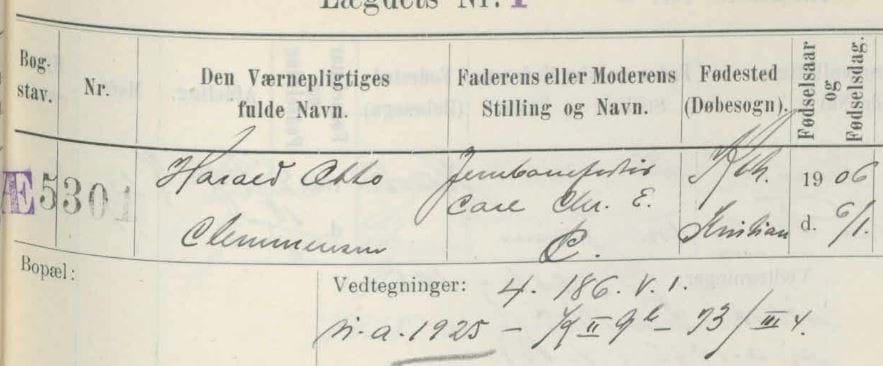 Lægdets Nr. 1
Bog-
stav.
Nr.
Den Værnepligtiges
fulde Navn.
Faderens eller Moderens
Stilling og Navn.
Fødested
(Døbesogn).
Fødselsaar
og
Fødselsdag.
Æ 530
Harald Otto
Clemmensen
Carl Chr. E.
C.
Kbh.
Kristian
1906
d. 6/1.
Bopæl:
Vedtegninger: 4. 186. V. 1.
n. a. 1925 –